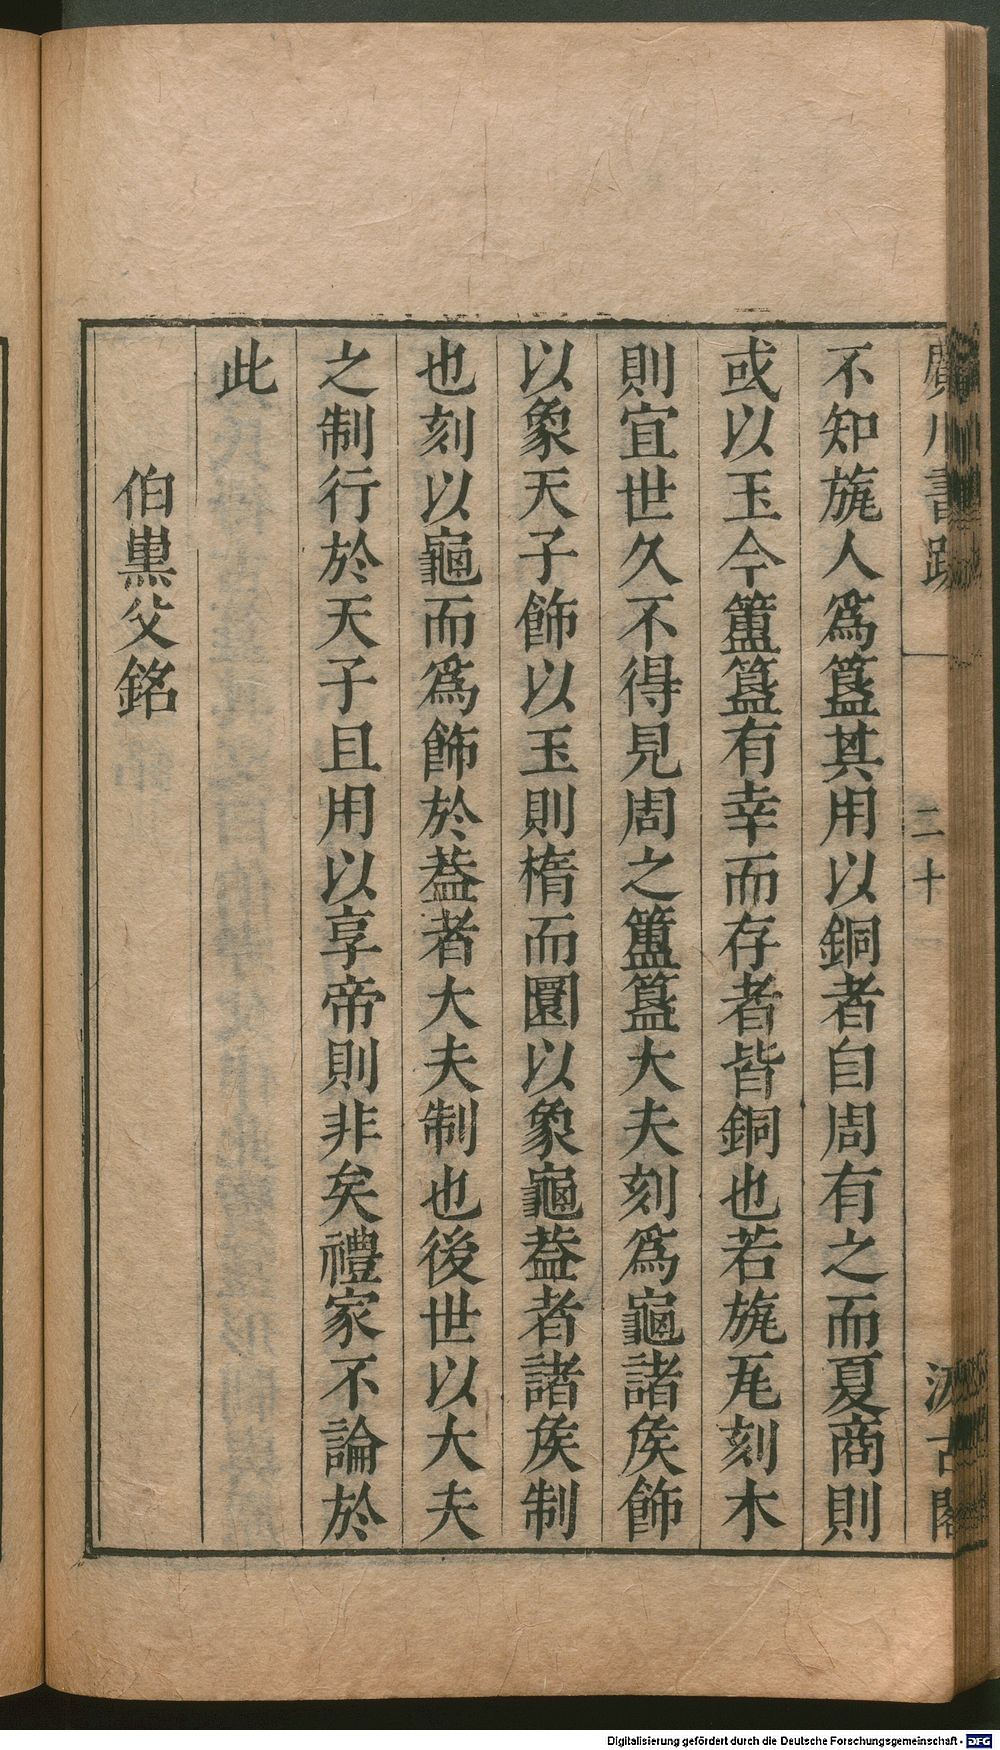 廣川書跋 二十 汲古閣
不知旊人爲簋其用以銅者自周有之而夏商則
或以玉今簠簋有幸而存者皆銅也若旊瓦刻木
則宜世久不得見周之簠簋大夫刻爲龜諸矦飾
以象天子飾以玉則楕而圜以象龜葢者諸矦制
也刻以龜而爲飾於葢者大夫制也後世以大夫
之制行於天子且用以享帝則非矣禮家不論於
此
伯䵋父銘
Digitalisierung gefördert durch die Deutsche Forschungsgemeinschaft - DFG